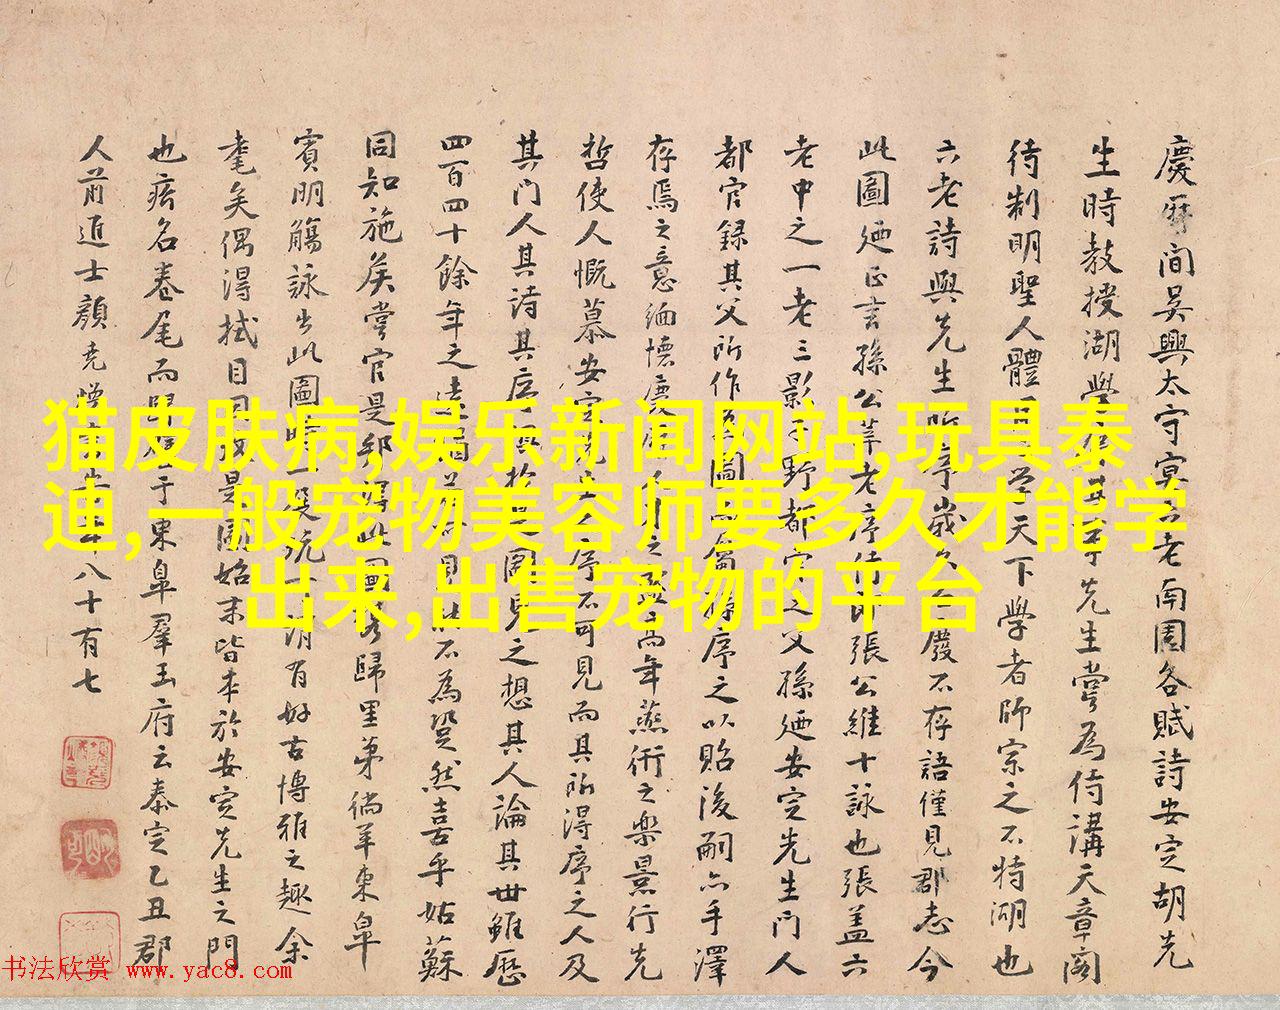 慶曆間吳興太守宴六老南園各賦詩安定胡先
生時教授湖學先生嘗為侍講天章閣
待制明聖人體學天下學者師宗之不特湖也
六老詩與先生所序歲久廢不存語僅見郡志今
此圖廼正言孫公莘老序侍郎張公維十詠也張蓋六
老中之一老三影子野都官之父孫廼安定先生門人
都官錄其父所作圖屬孫序之以貽後嗣亦手澤
存焉之意緬懷慶之高年燕衎之樂景行先
哲使人慨慕安定序不可見而其所得序之人及
其門人其詩其序圖見之想其人論其世雖歷
四百四十餘年之遠不為然喜乎姑蘇
同知施矦嘗官是郡此圖歸里第徜羊東皐
賓朋觴詠出此圖時一玩有好古博雅之趣余
耄矣偶得拭目因是圖始末皆本於安定先生之門
也名卷尾而歸于東皐羣玉府云泰定乙丑郡
人前進士顏堯年八十有七
猫皮肤病,娱乐新闻网站,玩具泰
迪,一般宠物美容师要多久才能学
出来,出售宠物的平台
书法欣赏 www.yac8.com